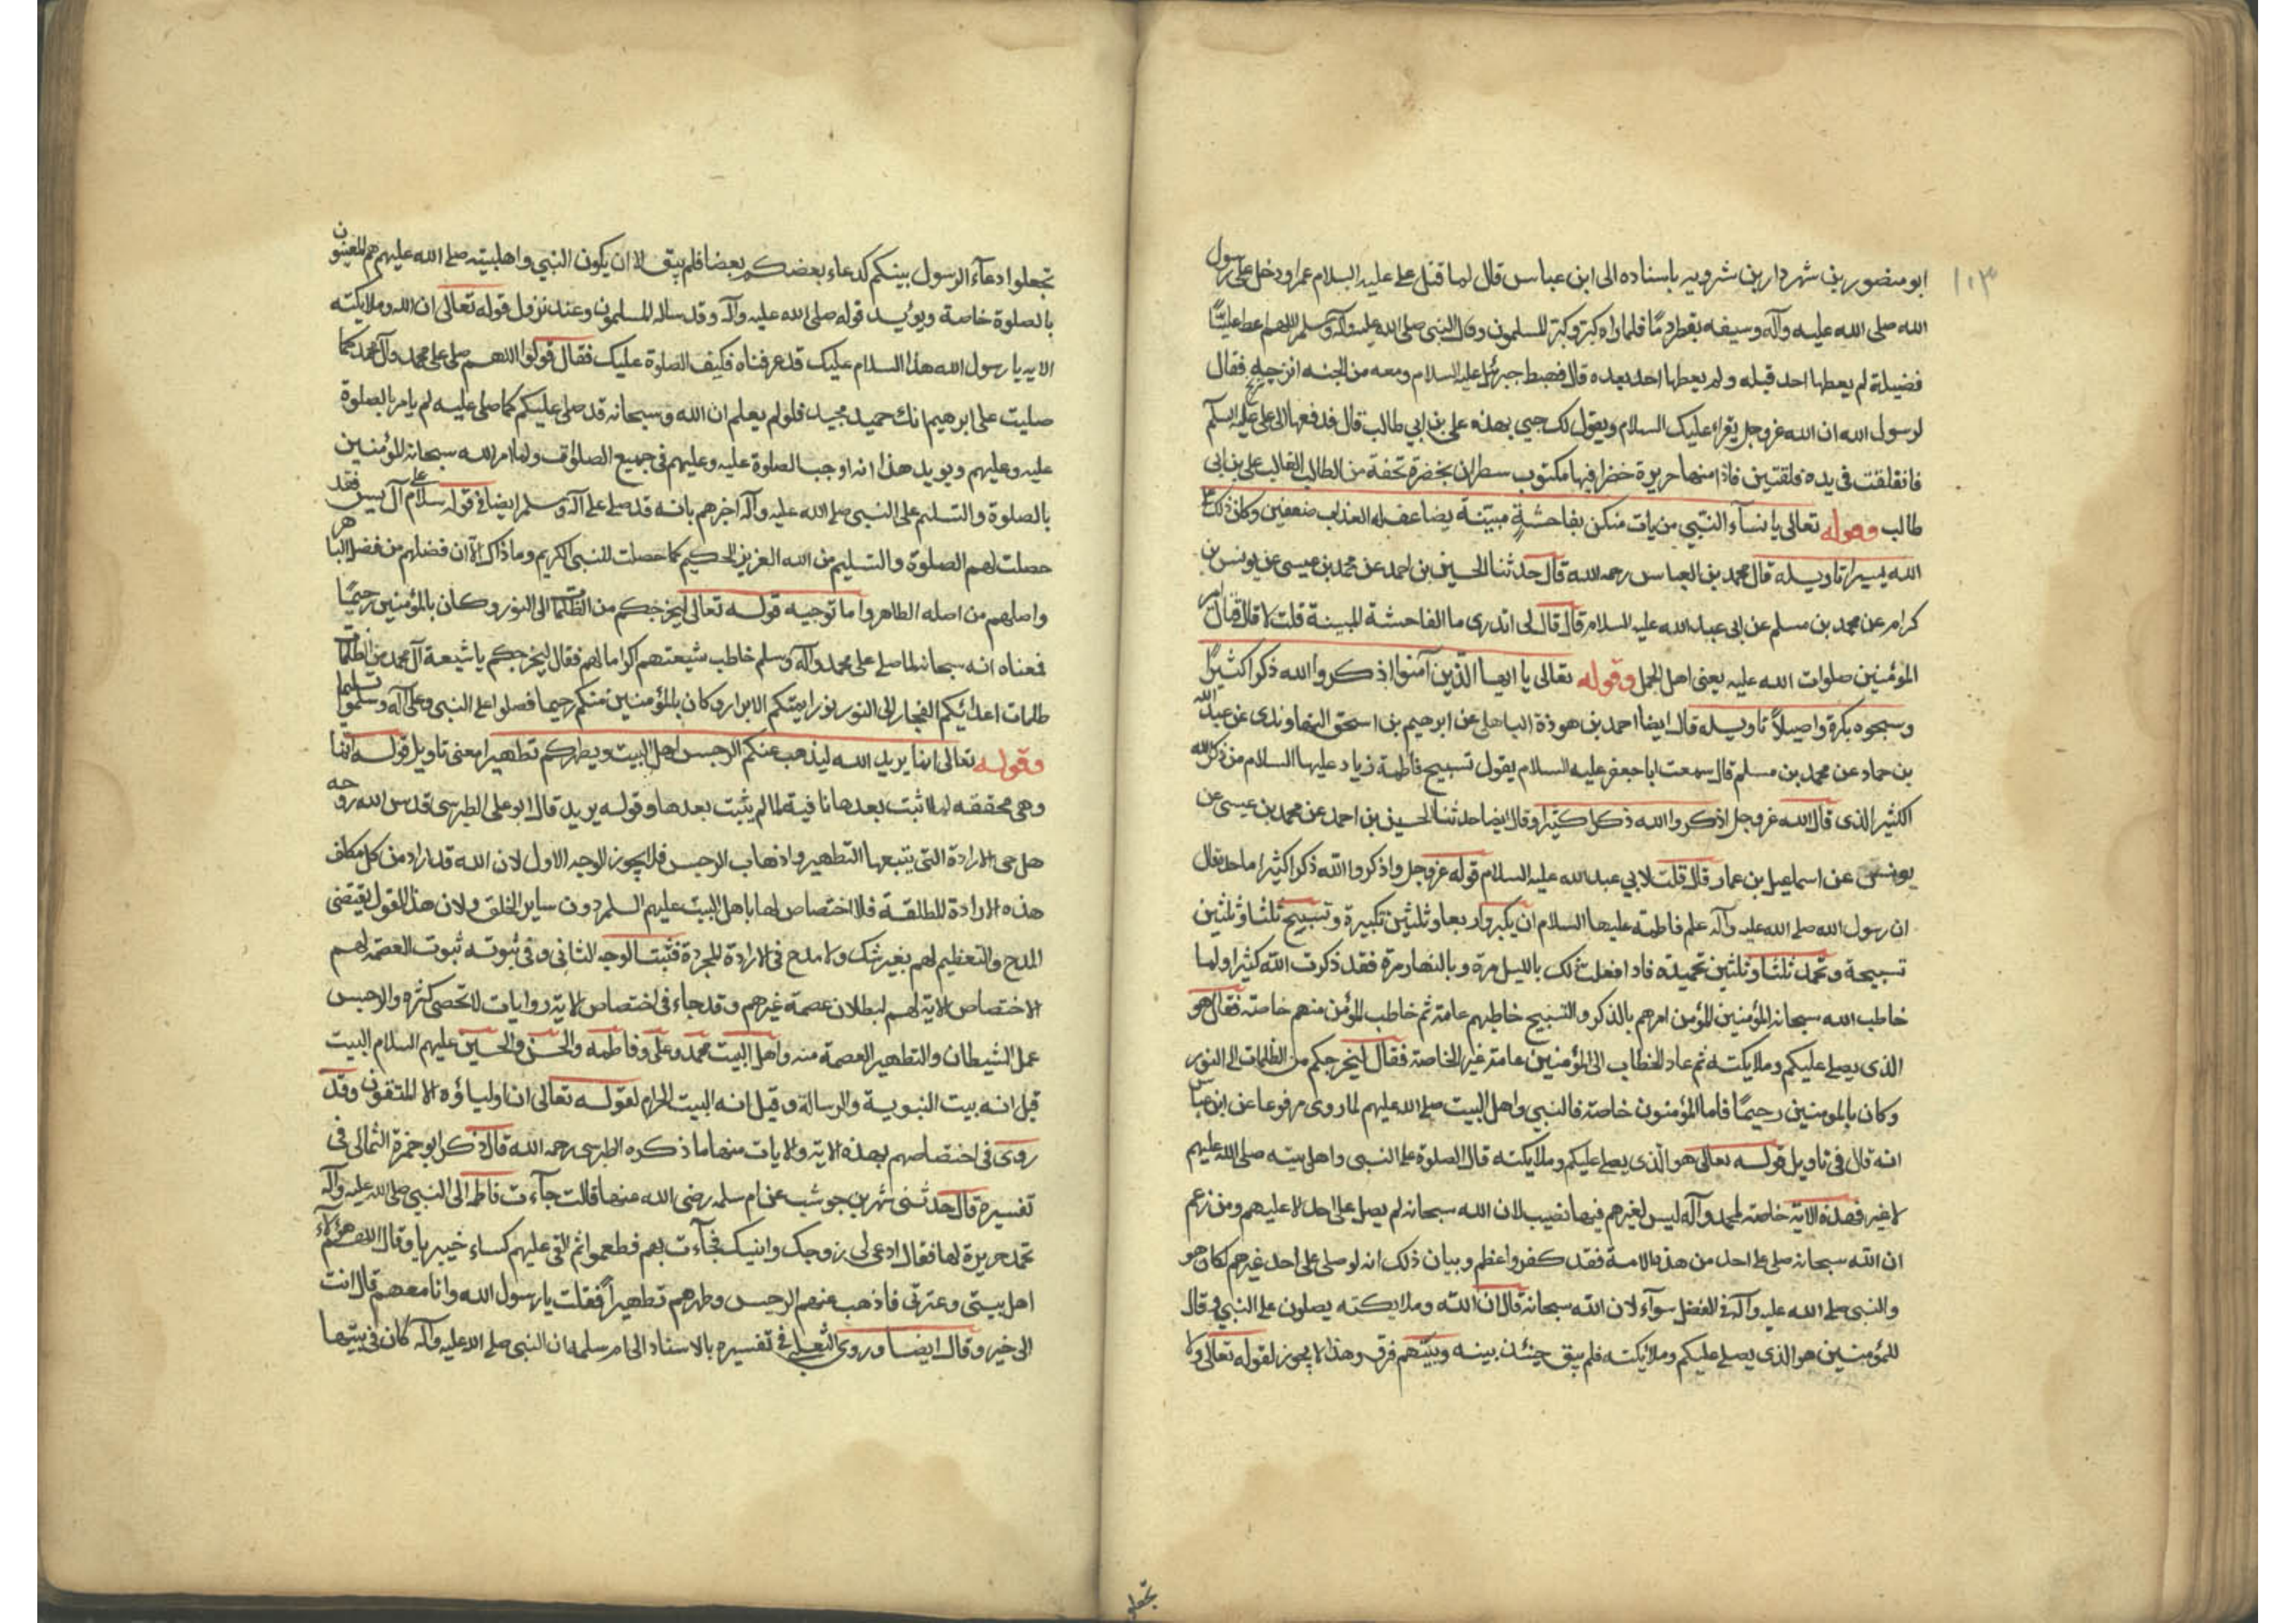 ١٠٣
ابو منصور بن شهردار بن شرويه باسناده الى ابن عباس قال لما قتل على عليه السلام عمرا ودخل على رسول
الله صلى الله عليه وآله وسيفه يقطر دمًا فلما راه كبر وكبر المسلمون وقال النبي صلى الله عليه وآله وسلم اللهم اعط عليًّا
فضيلة لم يعطها احد قبله ولم يعطها احد بعده قال فهبط جبرئيل عليه السلام ومعه من الجنه اترجه فقال
لرسول الله ان الله عز وجل يقراء عليك السلام ويقول لك حيي بهذه على بن ابي طالب قال فدفعها الى على عليه السلم
فانفلقت في يده فلقتين فاذا منها حريرة خضرا فيها مكتوب سطران بخضرة تحفة من الطالب الغالب على بن ابي
طالب وقوله تعالى يا نسآء النبي من يات منكن بفاحشةٍ مبينة يضاعف لها العذاب ضعفين وكان ذلك على
الله يسيرا تاويله قال محمد بن العباس رحمه الله قال حدثنا الحسين بن احمد عن محمد بن عيسى عن يونس بن
كرام عن محمد بن مسلم عن ابي عبد الله عليه السلام قال قال لى اتدرى ما الفاحشة المبينة قلت لا قال قتال امير
المؤمنين صلوات الله عليه يعنى اهل الجمل وقوله تعالى يا ايها الذين آمنوا اذكروا الله ذكرا كثيرًا
وسبحوه بكرة واصيلاً تاويله قال ايضا احمد بن هوذة الباهلى عن ابرهيم بن اسحق النهاوندى عن عبد الله
بن حماد عن محمد بن مسلم قال سمعت ابا جعفر عليه السلام يقول تسبيح فاطمة عليها السلام من ذكر الله
الكثير الذى قال الله عز وجل اذكروا الله ذكرا كثيرا وقال ايضا حدثنا الحسين بن احمد عن محمد بن عيسى عن
يونس عن اسماعيل بن عمار قال قلت لابي عبد الله عليه السلام قوله عز وجل واذكروا الله ذكرا كثيرا ما حده قال
ان رسول الله صلى الله عليه وآله علم فاطمة عليها السلام ان يكبر اربعا وثلثين تكبيرة وتسبيح ثلثا وثلثين
تسبيحة وتحمد ثلثا وثلثين تحميده فاذا فعلت ذلك بالليل مرة وبالنهار مرة فقد ذكرت الله كثيرا ولما
خاطب الله سبحانه المؤمنين المؤمن امرهم بالذكر والتسبيح خاطبهم عامة ثم خاطب المؤمن منهم خاصة فقال هو
الذى يصلى عليكم وملايكته ثم عاد الخطاب الى المؤمنين عامة غير الخاصة فقال ليخرجكم من الظلمات الى النور
وكان بالمومنين رحيمًا فاما المؤمنون خاصة فالنبي واهل البيت صلى الله عليهم لما روى مرفوعا عن ابن عباس
انه قال في تاويل قوله تعالى هو الذى يصلى عليكم وملايكته قال الصلوة على النبى واهل بيته صلى الله عليهم
لا غير فهذه الآية خاصة لمحمد وآله ليس لغيرهم فيها نصيب لان الله سبحانه لم يصل على احد الا عليهم ومن زعم
ان الله سبحانه صلى على احد من هذه الامة فقد كفر واعظم وبيان ذلك انه لو صلى على احد غيرهم لكان هو
والنبى صلى الله عليه وآله في الفضل سوآء لان الله سبحانه قال ان الله وملايكته يصلون على النبي وقال
للمؤمنين هو الذى يصلى عليكم وملائكته فلم يبق حينئذ بينه وبينهم فرق وهذا لا يجوز لقوله تعالى ولا
تجعلو
تجعلوا دعآء الرسول بينكم كدعاء بعضكم بعضا فلم يبق الا ان يكون النبي واهل بيته صلى الله عليهم هم المعنيون
بالصلوة خاصة ويؤيد قوله صلى الله عليه وآله وقد ساله المسلمون وعند نزول قوله تعالى ان الله وملايكته
الايه يا رسول الله هذا السلام عليك قد عرفناه فكيف الصلوة عليك فقال قولوا اللهم صلى على محمد وآل محمد كما
صليت على ابرهيم انك حميد مجيد فلو لم يعلم ان الله وسبحانه قد صلى عليكم كما صلى عليه لم يامر بالصلوة
عليه وعليهم ويويد هذا انه اوجب الصلوة عليه وعليهم في جميع الصلوات ولما امر الله سبحانه المؤمنين
بالصلوة والتسليم على النبى صلى الله عليه وآله اخبرهم بانه قد صلى على آله وسلم ايضا في قوله سلام على آل يس فقد
حصلت لهم الصلوة والتسليم من الله العزيز الحكيم كما حصلت للنبى الكريم وما ذاك الا ان فضلهم من فضله الباهر
واصلهم من اصله الطاهر واما توجيه قوله تعالى ليخرجكم من الظلمات الى النور وكان بالمؤمنين رحيمًا
فمعناه انه سبحانه لما صلى على محمد وآله وسلم خاطب شيعتهم اكراما لهم فقال ليخرجكم يا شيعة آل محمد من الظلمات
ظلمات اعدائكم الفجار الى النور نور ايمتكم الابرار وكان بالمؤمنين منكم رحيما فصلوا على النبى وعلى آله وسلموا تسليما
وقوله تعالى انما يريد الله ليذهب عنكم الرجس اهل البيت ويطهركم تطهيرا معنى تاويل قوله انما
وهى محققه لما ثبت بعدها نافية لما لم يثبت بعدها وقوله يريد قال ابو على الطبرسى قدس الله روحه
هل هى الارادة التى يتبعها التطهير واذهاب الرجس فلا يجوز الوجه الاول لان الله قد اراد من كل مكلف
هذه الارادة المطلقة فلا اختصاص لها باهل البيت عليهم السلم دون ساير الخلق ولان هذا القول يقتضى
المدح والتعظيم لهم بغير شك ولا مدح في الارادة المجردة فثبت الوجه الثانى وفى ثبوته ثبوت العصمة لهم
الاختصاص الاية لهم لبطلان عصمة غيرهم وقد جاء في اختصاص الاية روايات لا تحصى كثره والرجس
عمل الشيطان والتطهير العصمة منه واهل البيت محمد وعلى وفاطمه والحسن والحسين عليهم السلام البيت
قيل انه بيت النبوية والرسالة وقيل انه البيت الحرام لقوله تعالى ان اولياؤه الا المتقون وقد
روى في اختصاصهم بهذه الاية ولايات منها ما ذكره الطبرسى رحمه الله قال ذكر ابو حمزة الثمالى فى
تفسيره قال حدثنى شهر بن حوشب عن ام سلمه رضى الله عنها قالت جآءت فاطمه الى النبي صلى الله عليه وآله
تحمد حريرة لها فقال ادعى لى زوجك وابنيك فجآءت بهم فطعموا ثم القى عليهم كساء خيبريا وقال اللهم هؤلاء
اهل بيتى وعترتى فاذهب عنهم الرجس وطهرهم تطهيراً فقلت يا رسول الله وانا معهم قال انت
الى خير وقال ايضا وروى الثعلبي في تفسيره بالاسناد الى ام سلمه ان النبى صلى الله عليه وآله كان فى بيتها